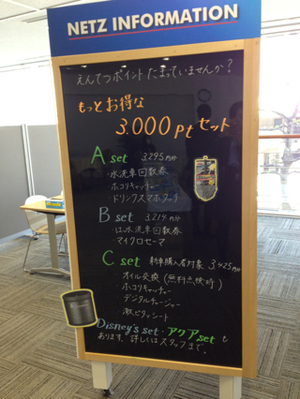 NETZ INFORMATION
えんてつポイントたまっていませんか?
もっとお得な
3,000ptセット
A set 3295円分
・水洗車回数券
・ホコリキャッチャー
・ドリンクスマホタッチ
B set 3214円分
・はっ水洗車回数券
・マイクロセーマ
C set 新車購入者対象 3425円分
・オイル交換(無料点検時)
・ホコリキャッチャー
・デジタルチャージャー
・激ピタッシート
Disney's set・アクアsetも
あります。詳しくはスタッフまで。